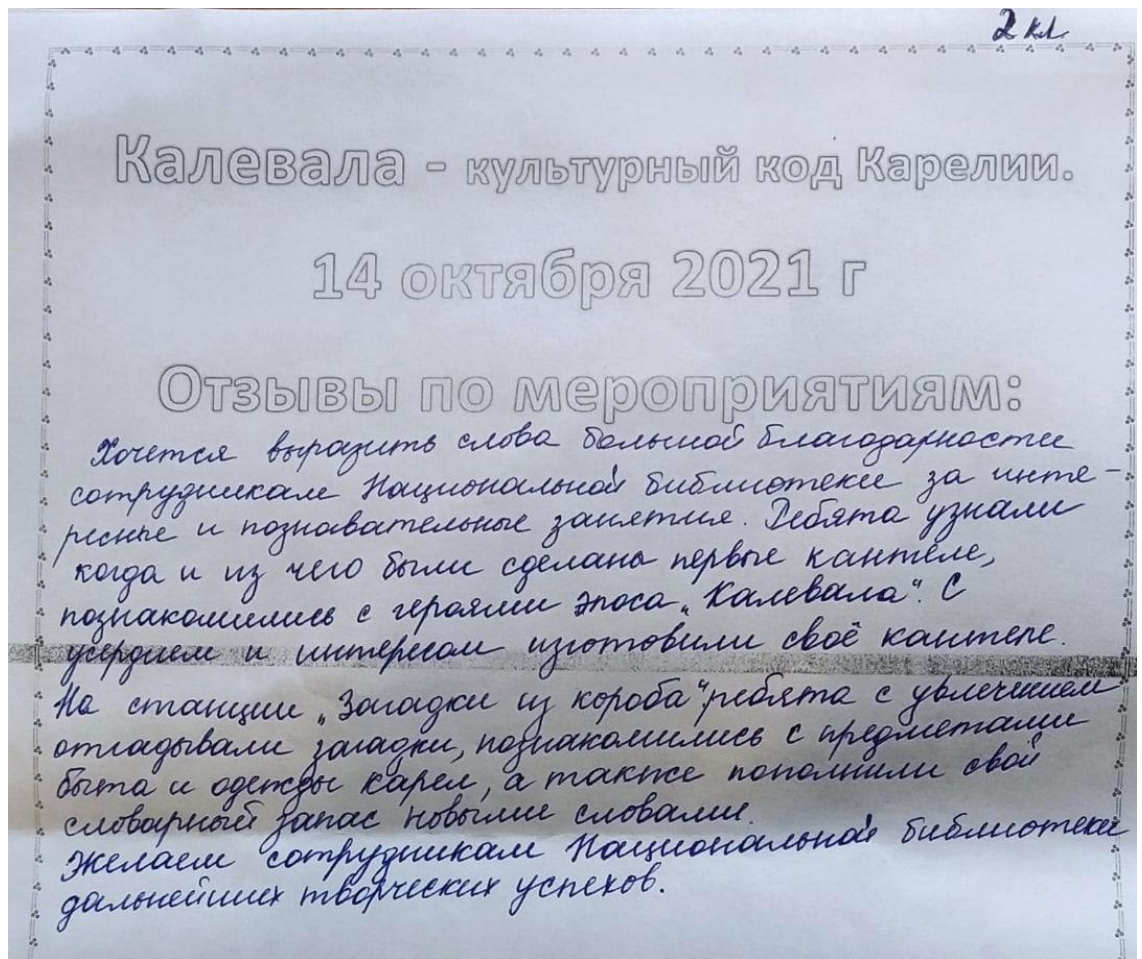 2 кл.
Калевала - культурный код Карелии.
14 октября 2021 г
Отзывы по мероприятиям:
Хочется выразить слова большой благодарности
сотрудникам Национальной библиотеки за инте-
ресные и познавательные занятия. Ребята узнали
когда и из чего были сделаны первые кантеле,
познакомились с героями эпоса „Калевала“. С
усердием и интересом изготовили своё кантеле.
На станции „Загадки из короба“ ребята с увлечением
отгадывали загадки, познакомились с предметами
быта и одежды карел, а также пополнили свой
словарный запас новыми словами.
Желаем сотрудникам Национальной библиотеки
дальнейших творческих успехов.